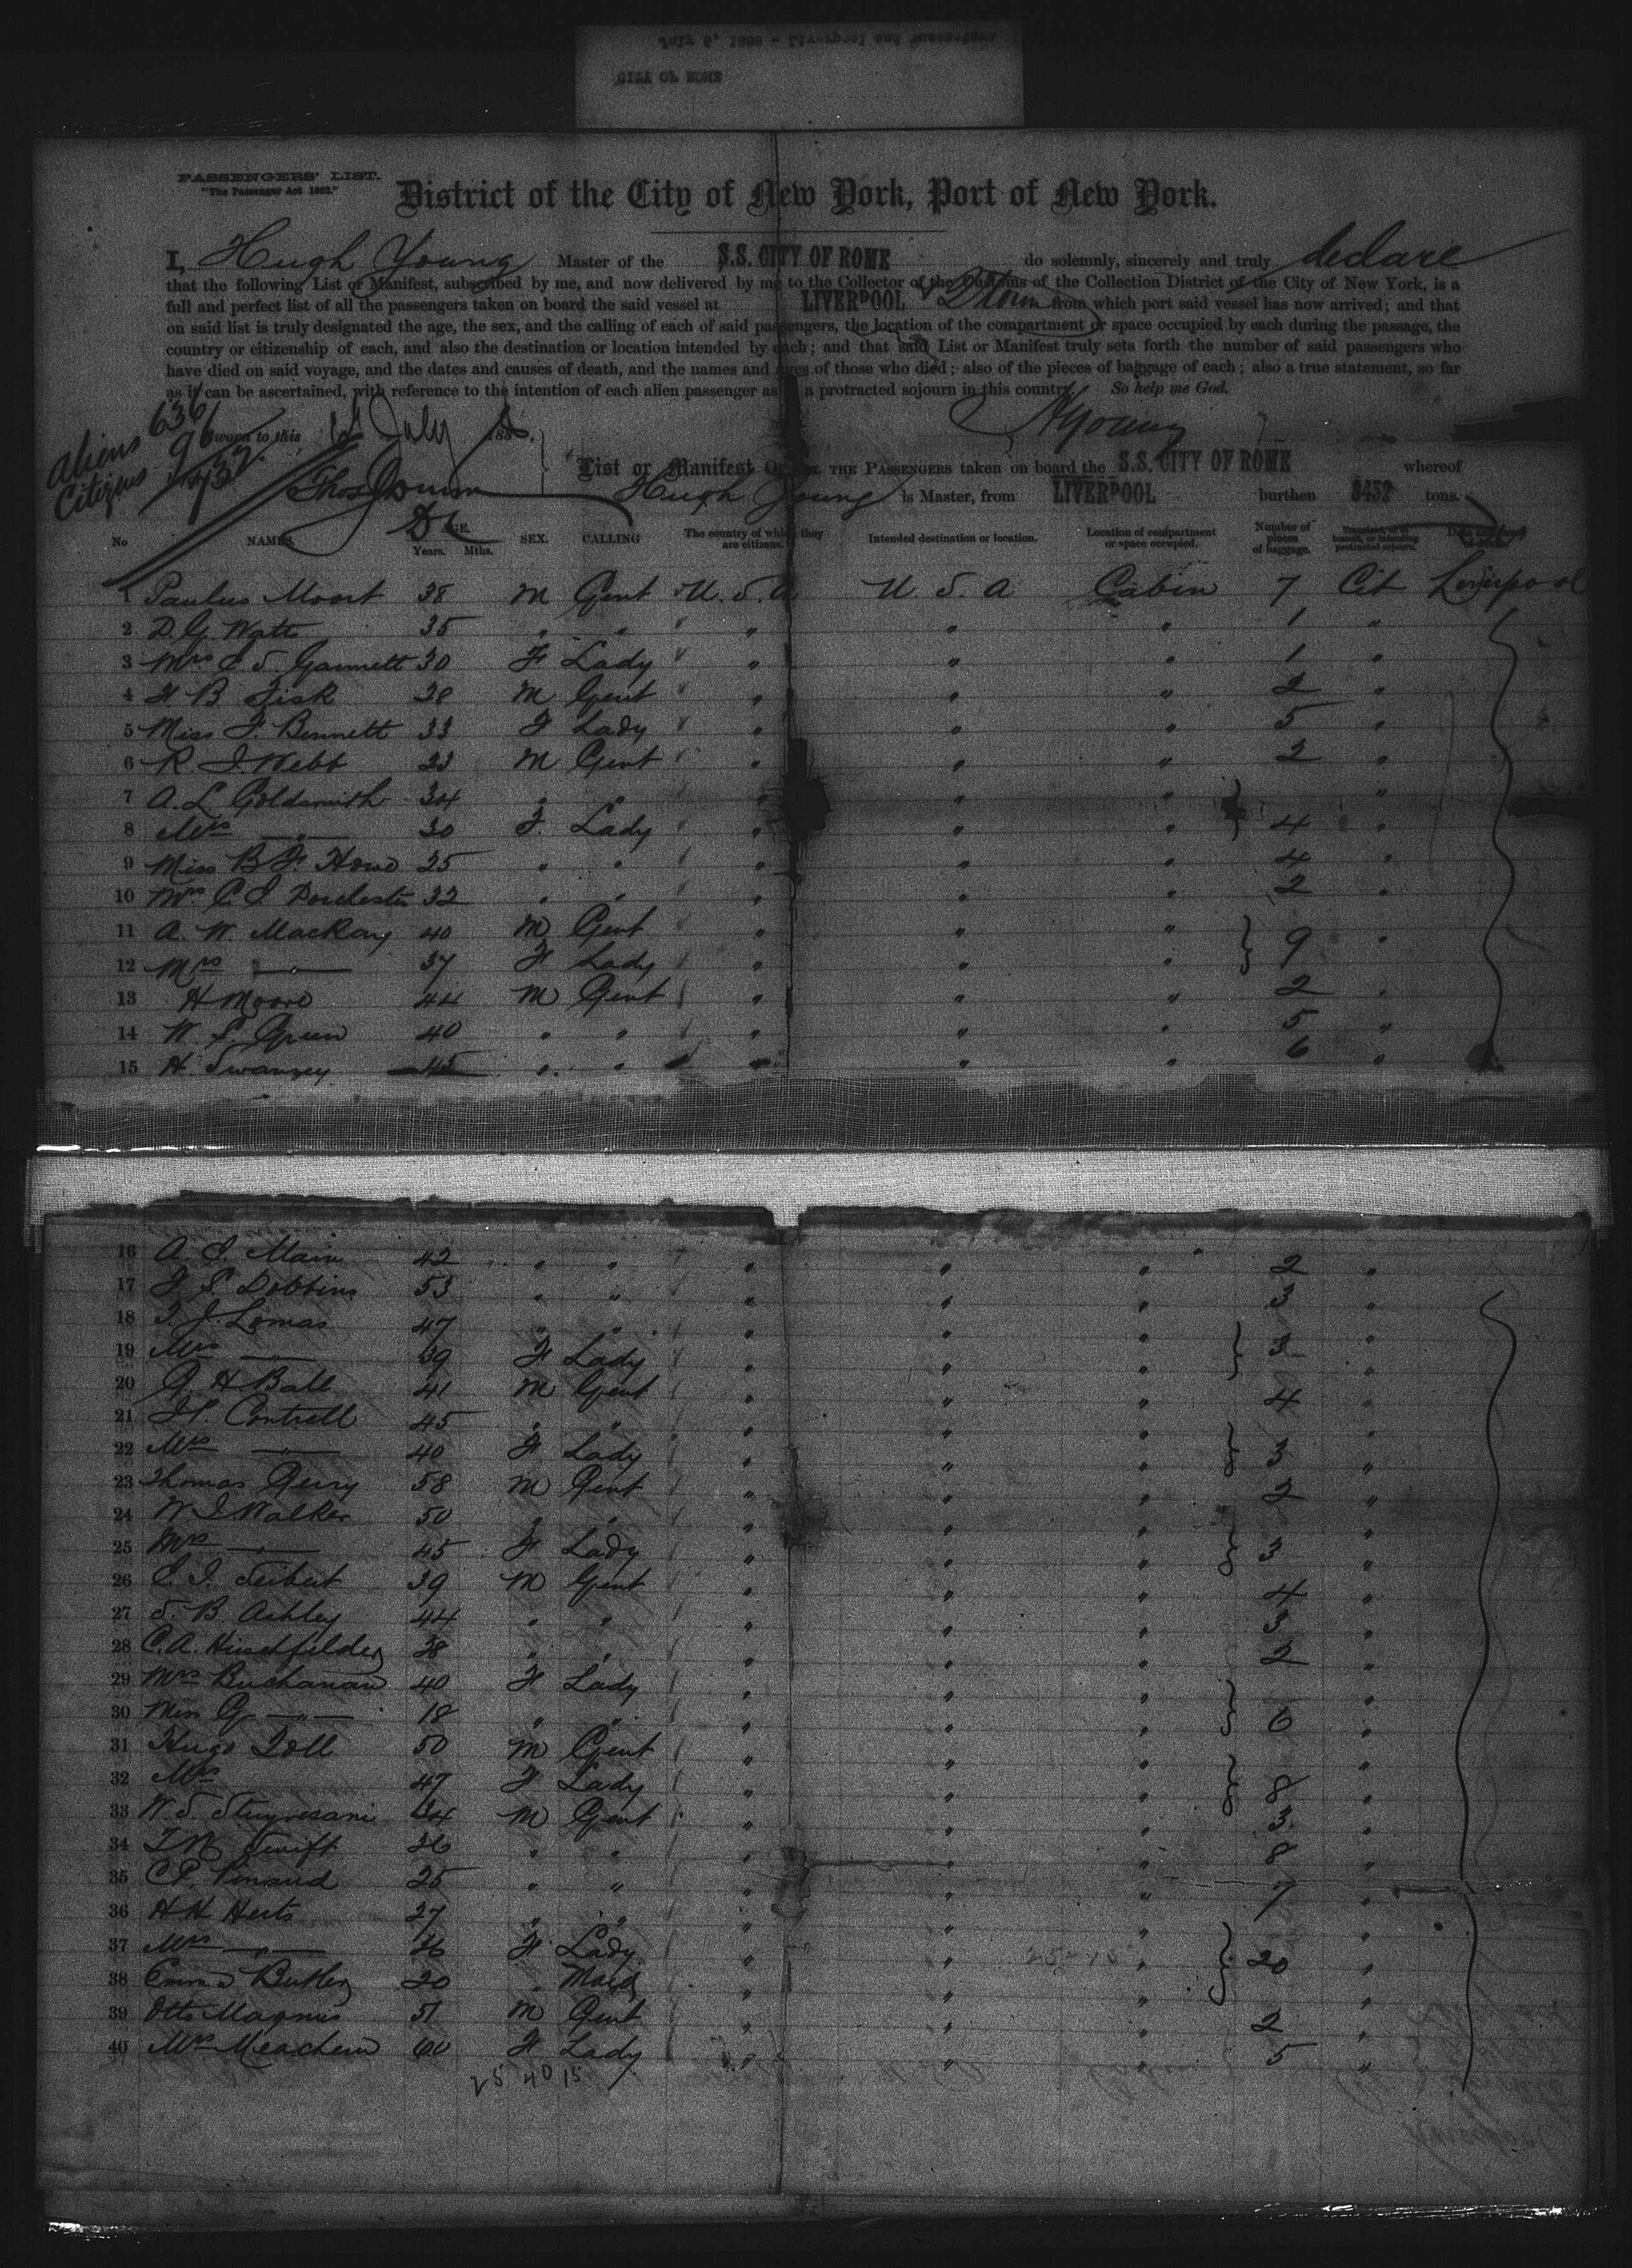 July 6, 1888 - Liverpool and Queenstown
CITY OF ROME
PASSENGERS' LIST.
"The Passenger Act 1882."
District of the City of New York, Port of New York.
I, Hugh Young Master of the S.S. CITY OF ROME do solemnly, sincerely and truly declare
that the following List or Manifest, subscribed by me, and now delivered by me to the Collector of the Customs of the Collection District of the City of New York, is a
full and perfect list of all the passengers taken on board the said vessel at LIVERPOOL & Qtown from which port said vessel has now arrived; and that
on said list is truly designated the age, the sex, and the calling of each of said passengers, the location of the compartment or space occupied by each during the passage, the
country or citizenship of each, and also the destination or location intended by each; and that said List or Manifest truly sets forth the number of said passengers who
have died on said voyage, and the dates and causes of death, and the names and ages of those who died; also of the pieces of baggage of each; also a true statement, so far
as it can be ascertained, with reference to the intention of each alien passenger as to a protracted sojourn in this country. So help me God.
HYoung
Aliens 636
Citizens 96
732
Sworn to this July 188
List or Manifest OF ALL THE PASSENGERS taken on board the S.S. CITY OF ROME whereof
Hugh Young is Master, from LIVERPOOL burthen 8452 tons.
No NAMES. AGE. Years. Mths. SEX. CALLING The country of which they are citizens. Intended destination or location. Location of compartment or space occupied. Number of pieces of baggage. Transient, or in transit, or intending protracted sojourn. Date and cause of death.
1 Paulus Moort 38 M Gent U.S.A U.S.A Cabin 7 Cit Liverpool
2 D. G. Watts 35 " " " " " 1 "
3 Mrs Gannett 30 F Lady " " " 1 "
4 F. B. Fisk 38 M Gent " " " 2 "
5 Miss F. Bennett 33 F Lady " " " 5 "
6 R. J. Webb 23 M Gent " " " 2 "
7 A. L. Goldsmith 34 " " " " " "
8 Mrs " 30 F. Lady " " " 4 "
9 Miss B. F. Howe 25 " " " " " 4 "
10 Mrs C. I. Dorchester 32 " " " " " 2 "
11 A. W. MacKay 40 M Gent " " "
12 Mrs " 37 F Lady " " " 9 "
13 H Moore 44 M Gent " " " 2 "
14 W. S. Green 40 " " " " " 5 "
15 H Swanzey 45 " " " " " 6 "
16 A. I. Main 42 " " " " " 2 "
17 F. S. Dobbins 53 " " " " " 3 "
18 T. J. Lomas 47 " " " " " "
19 Mrs " 39 F Lady " " " 3 "
20 G. H Ball 41 M Gent " " " 4 "
21 Contrell 45 " " " " " "
22 Mrs " 40 F Lady " " " 3 "
23 Thomas Gerry 58 M Gent " " " 2 "
24 W J Walker 50 " " " " " "
25 Mrs " 45 F Lady " " " 3 "
26 Seibert 39 M Gent " " " 4 "
27 S. B. Ashley 44 " " " " " 3 "
28 C. A. Hirschfelder 38 " " " " " 2 "
29 Mrs Buchanan 40 F Lady " " " "
30 Miss G " 18 " " " " " 6 "
31 Hugo Toll 50 M Gent " " " "
32 Mrs 47 F Lady " " " 8 "
33 W. S. Stuyvesant 34 M Gent " " " 3 "
34 Swift 36 " " " " " 8 "
35 C P. 25 " " " " " 7 "
36 H H Herts 27 " " " " " "
37 Mrs " F Lady " " " "
38 Emma Butler 20 " Maid " " " 20 "
39 Otto Magnus 51 M Gent " " " 2 "
40 Mrs Meachem 60 F Lady " " " 5 "
25 40 15